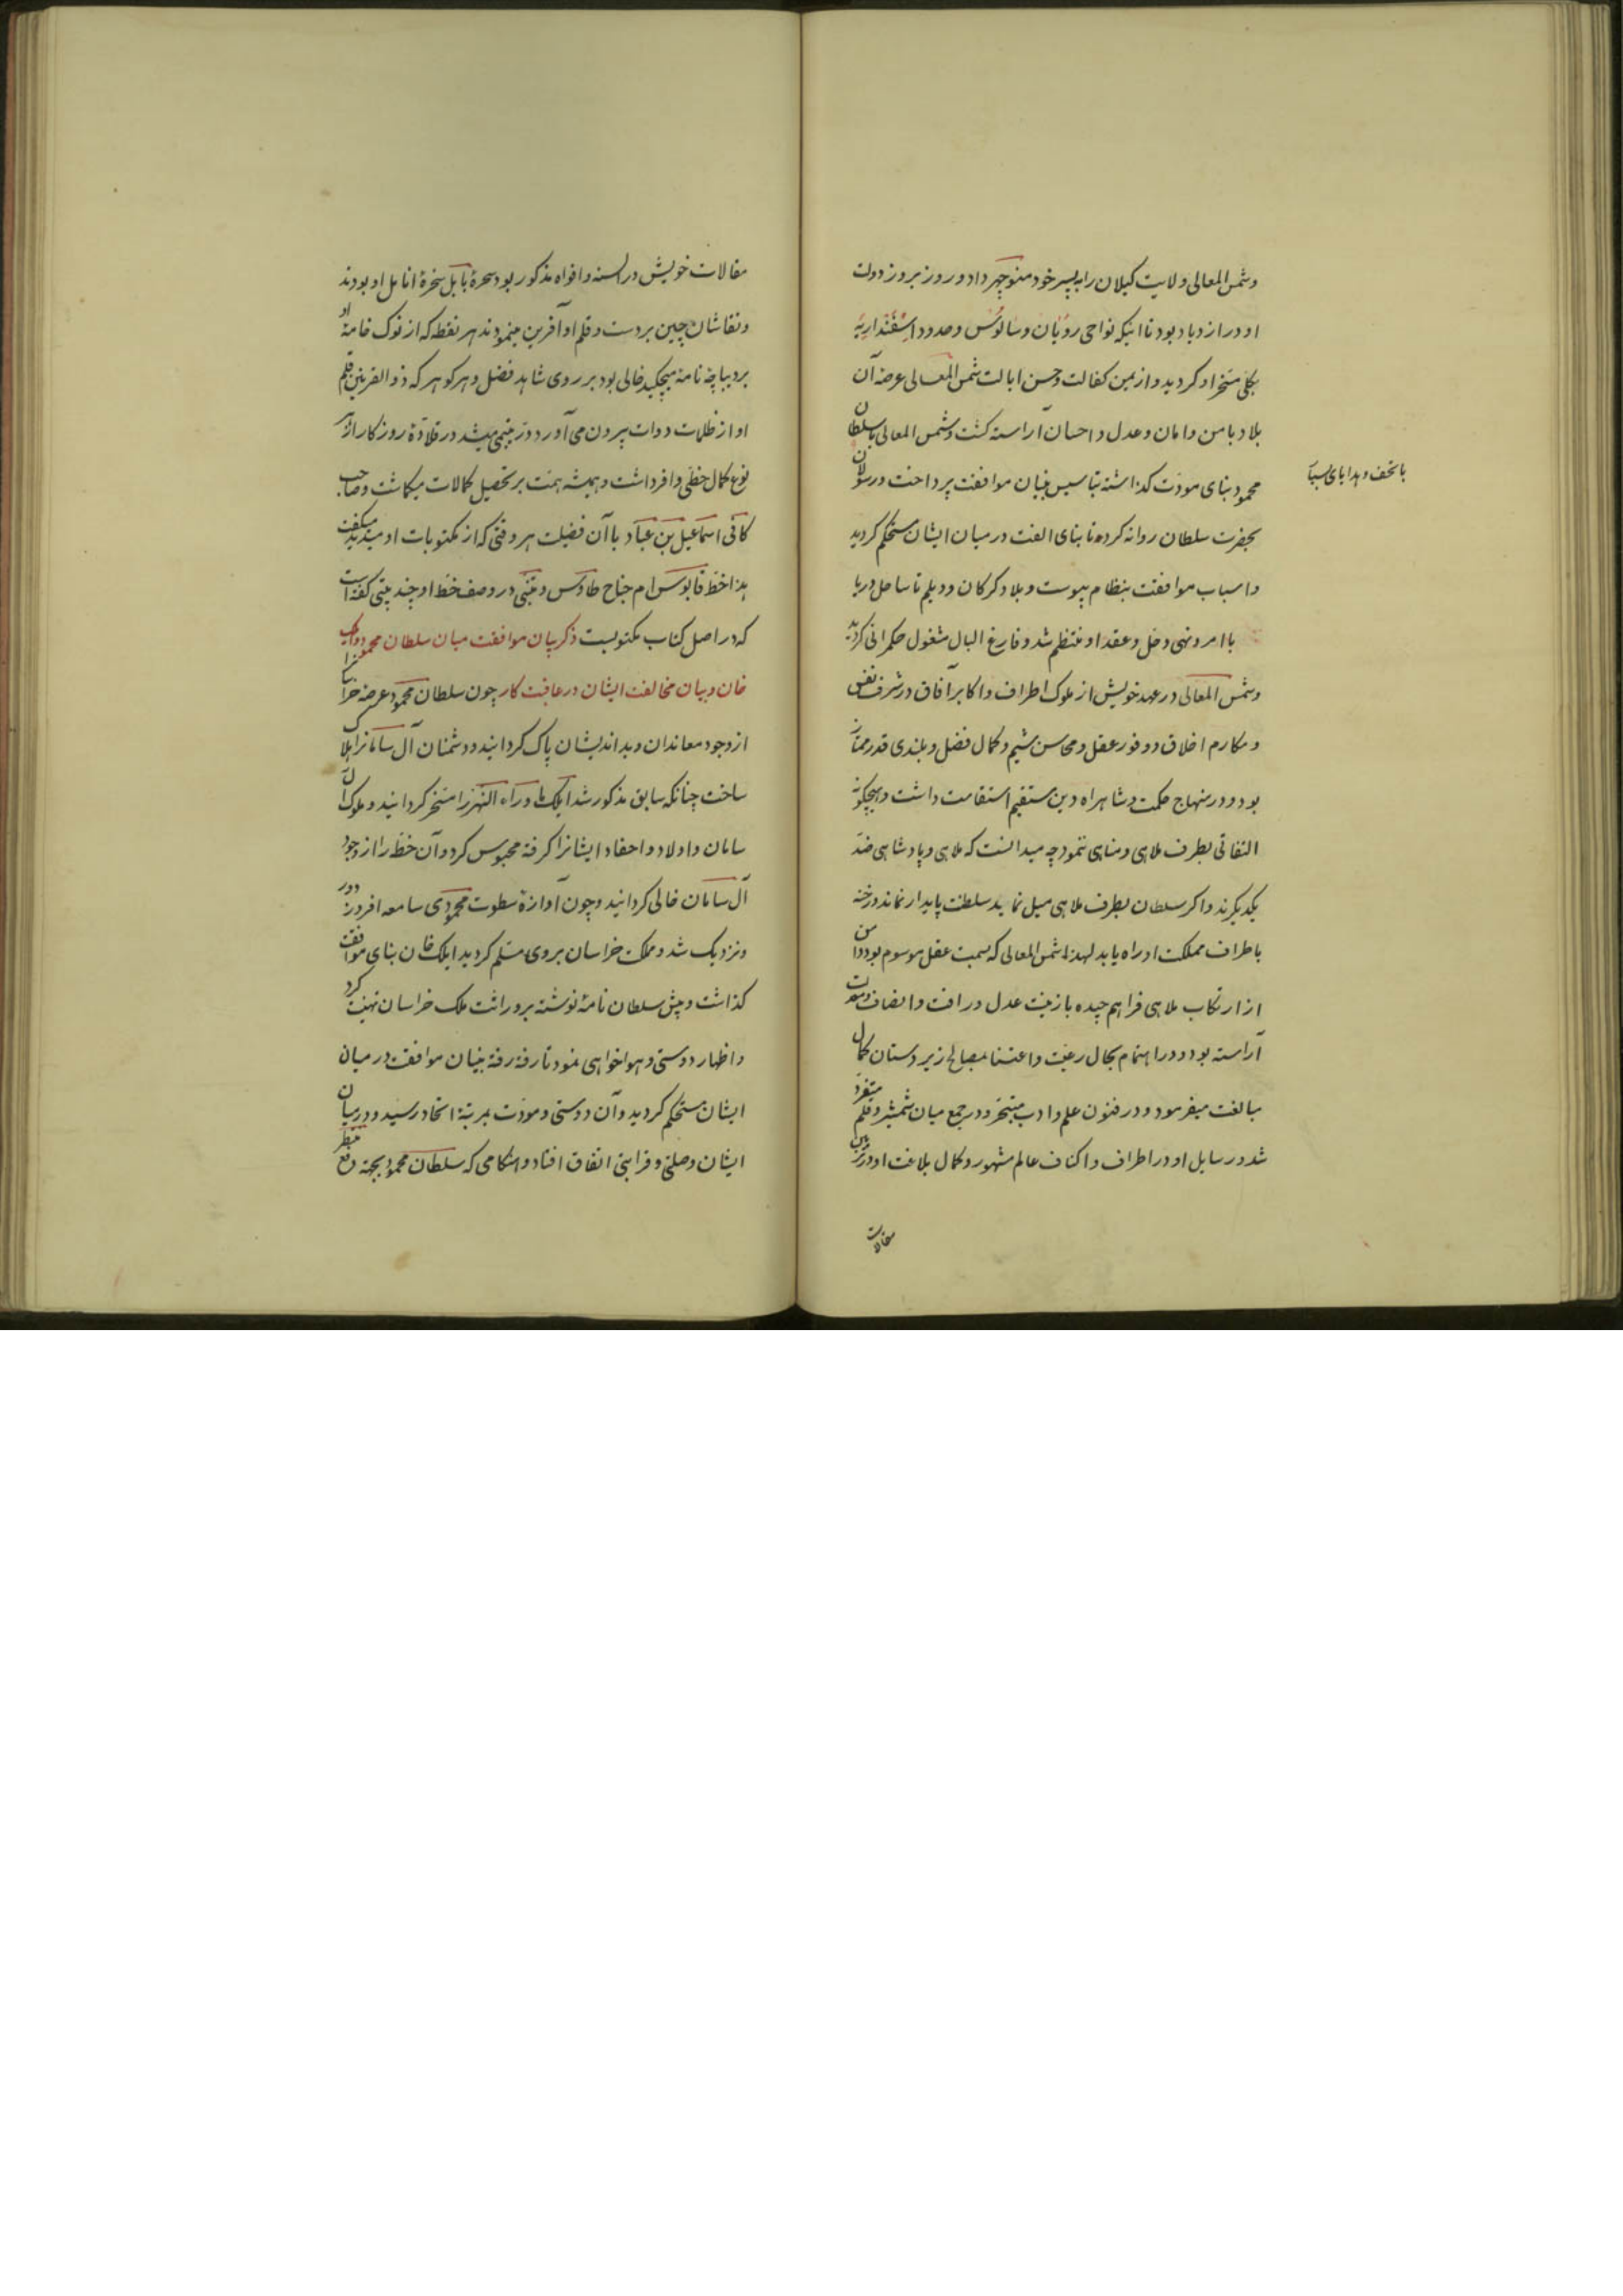 وشمس المعالی ولایت کیلان را به پسر خود منوچهر داد و روز بروز دولت
او در ازدیاد بود تا اینکه نواحی رویان و سالوس و حدود اسفنداریه
بکلی مسخر او کردید و از یمن کفالت و حسن ایالت شمس المعالی عرصه آن
بلاد بامن و امان و عدل و احسان آراسته کشت و شمس المعالی با سلطان
محمود بنای مودت کذاشته بتاسیس بنیان موافقت پرداخت و رسولان
با تحف و هدایای
بحضرت سلطان روانه کرده تا بنای الفت در میان ایشان مستحکم کردید
و اسباب موافقت بنظام پیوست و بلاد کرکان و دیلم تا ساحل دریا
با امر و نهی و حل و عقد او منتظم شد و فارغ البال مشغول حکمرانی کردید
وشمس المعالی در عهد خویش از ملوک اطراف و اکابر آفاق در شرف نفس
و مکارم اخلاق و وفور عقل و محاسن شیم و کمال فضل و بلندی قدر ممتاز
بود و در منهاج حکمت و شاهراه دین مستقیم استقامت داشت و هیچکونه
التفاتی بطرف ملاهی و مناهی ننمود چه میدانست که ملاهی و پادشاهی ضد
یکدیکرند و اکر سلطان بطرف ملاهی میل نماید سلطنت پایدار نماند و رخنه
باطراف مملکت او راه یابد لهذا شمس المعالی که بسمت عقل موسوم بود دامن
از ارتکاب ملاهی فراهم چیده بازینت عدل و رافت و انصاف و معدلت
آراسته بود و در اهتمام بحال رعیت و اعتنا بمصالح زیردستان کمال
مبالغت میفرمود و در فنون علم و ادب متبحر و در جمع میان شمشیر و قلم متفرد
شد و رسایل او در اطراف و اکناف عالم مشهور و کمال بلاغت او در
مقالات
مقالات خویش در السنه و افواه مذکور بود سحرۀ بابل سخرۀ انامل او بودند
و نقاشان چین بر دست و قلم او آفرین مینمودند هر نقطه که از نوک خامۀ او
بر دیباچۀ نامه میچکید خالی بود بر روی شاهد فضل و هر کوهر که ذو القرنین قلم
او از ظلمات دوات بیرون می آورد در یتیمی میشد در قلادۀ روزکار از هر
نوع کمال حظی وافر داشت و همیشه همت بر تحصیل کمالات میکماشت و صاحب
کافی اسماعیل بن عباد با آن فضیلت هر وقتی که از مکتوبات او میدید میکفت
هذا خط قابوس ام جناح طاوس و متنبی در وصف خط او چند بیتی کفته است
که در اصل کتاب مکتوبست ذکر بیان موافقت میان سلطان محمود و ایلک
خان و بیان مخالفت ایشان در عاقبت کار چون سلطان محمود عرصه خراسان را
از وجود معاندان و بد اندیشان پاک کردانید و دشمنان آل سامانرا هلاک
ساخت چنانکه سابق مذکور شد ایلک ما وراء النهر را مسخر کردانید و ملوک آل
سامان و اولاد و احفاد ایشانرا کرفته محبوس کرد و آن خطه را از وجود
آل سامان خالی کردانید و چون آوازۀ سطوت محمودی سامعه افروز دور
و نزدیک شد و ملک خراسان بروی مسلم کردید ایلک خان بنای موافقت
کذاشت و پیش سلطان نامۀ نوشته بر وراثت ملک خراسان تهنیت کرد
و اظهار دوستی و هواخواهی نمود تا رفته رفته بنیان موافقت در میان
ایشان مستحکم کردید و آن دوستی و مودت بمرتبۀ اتحاد رسید و در میان
ایشان وصلتی و قرابتی اتفاق افتاد و هنکامی که سلطان محمود بجهة دفع